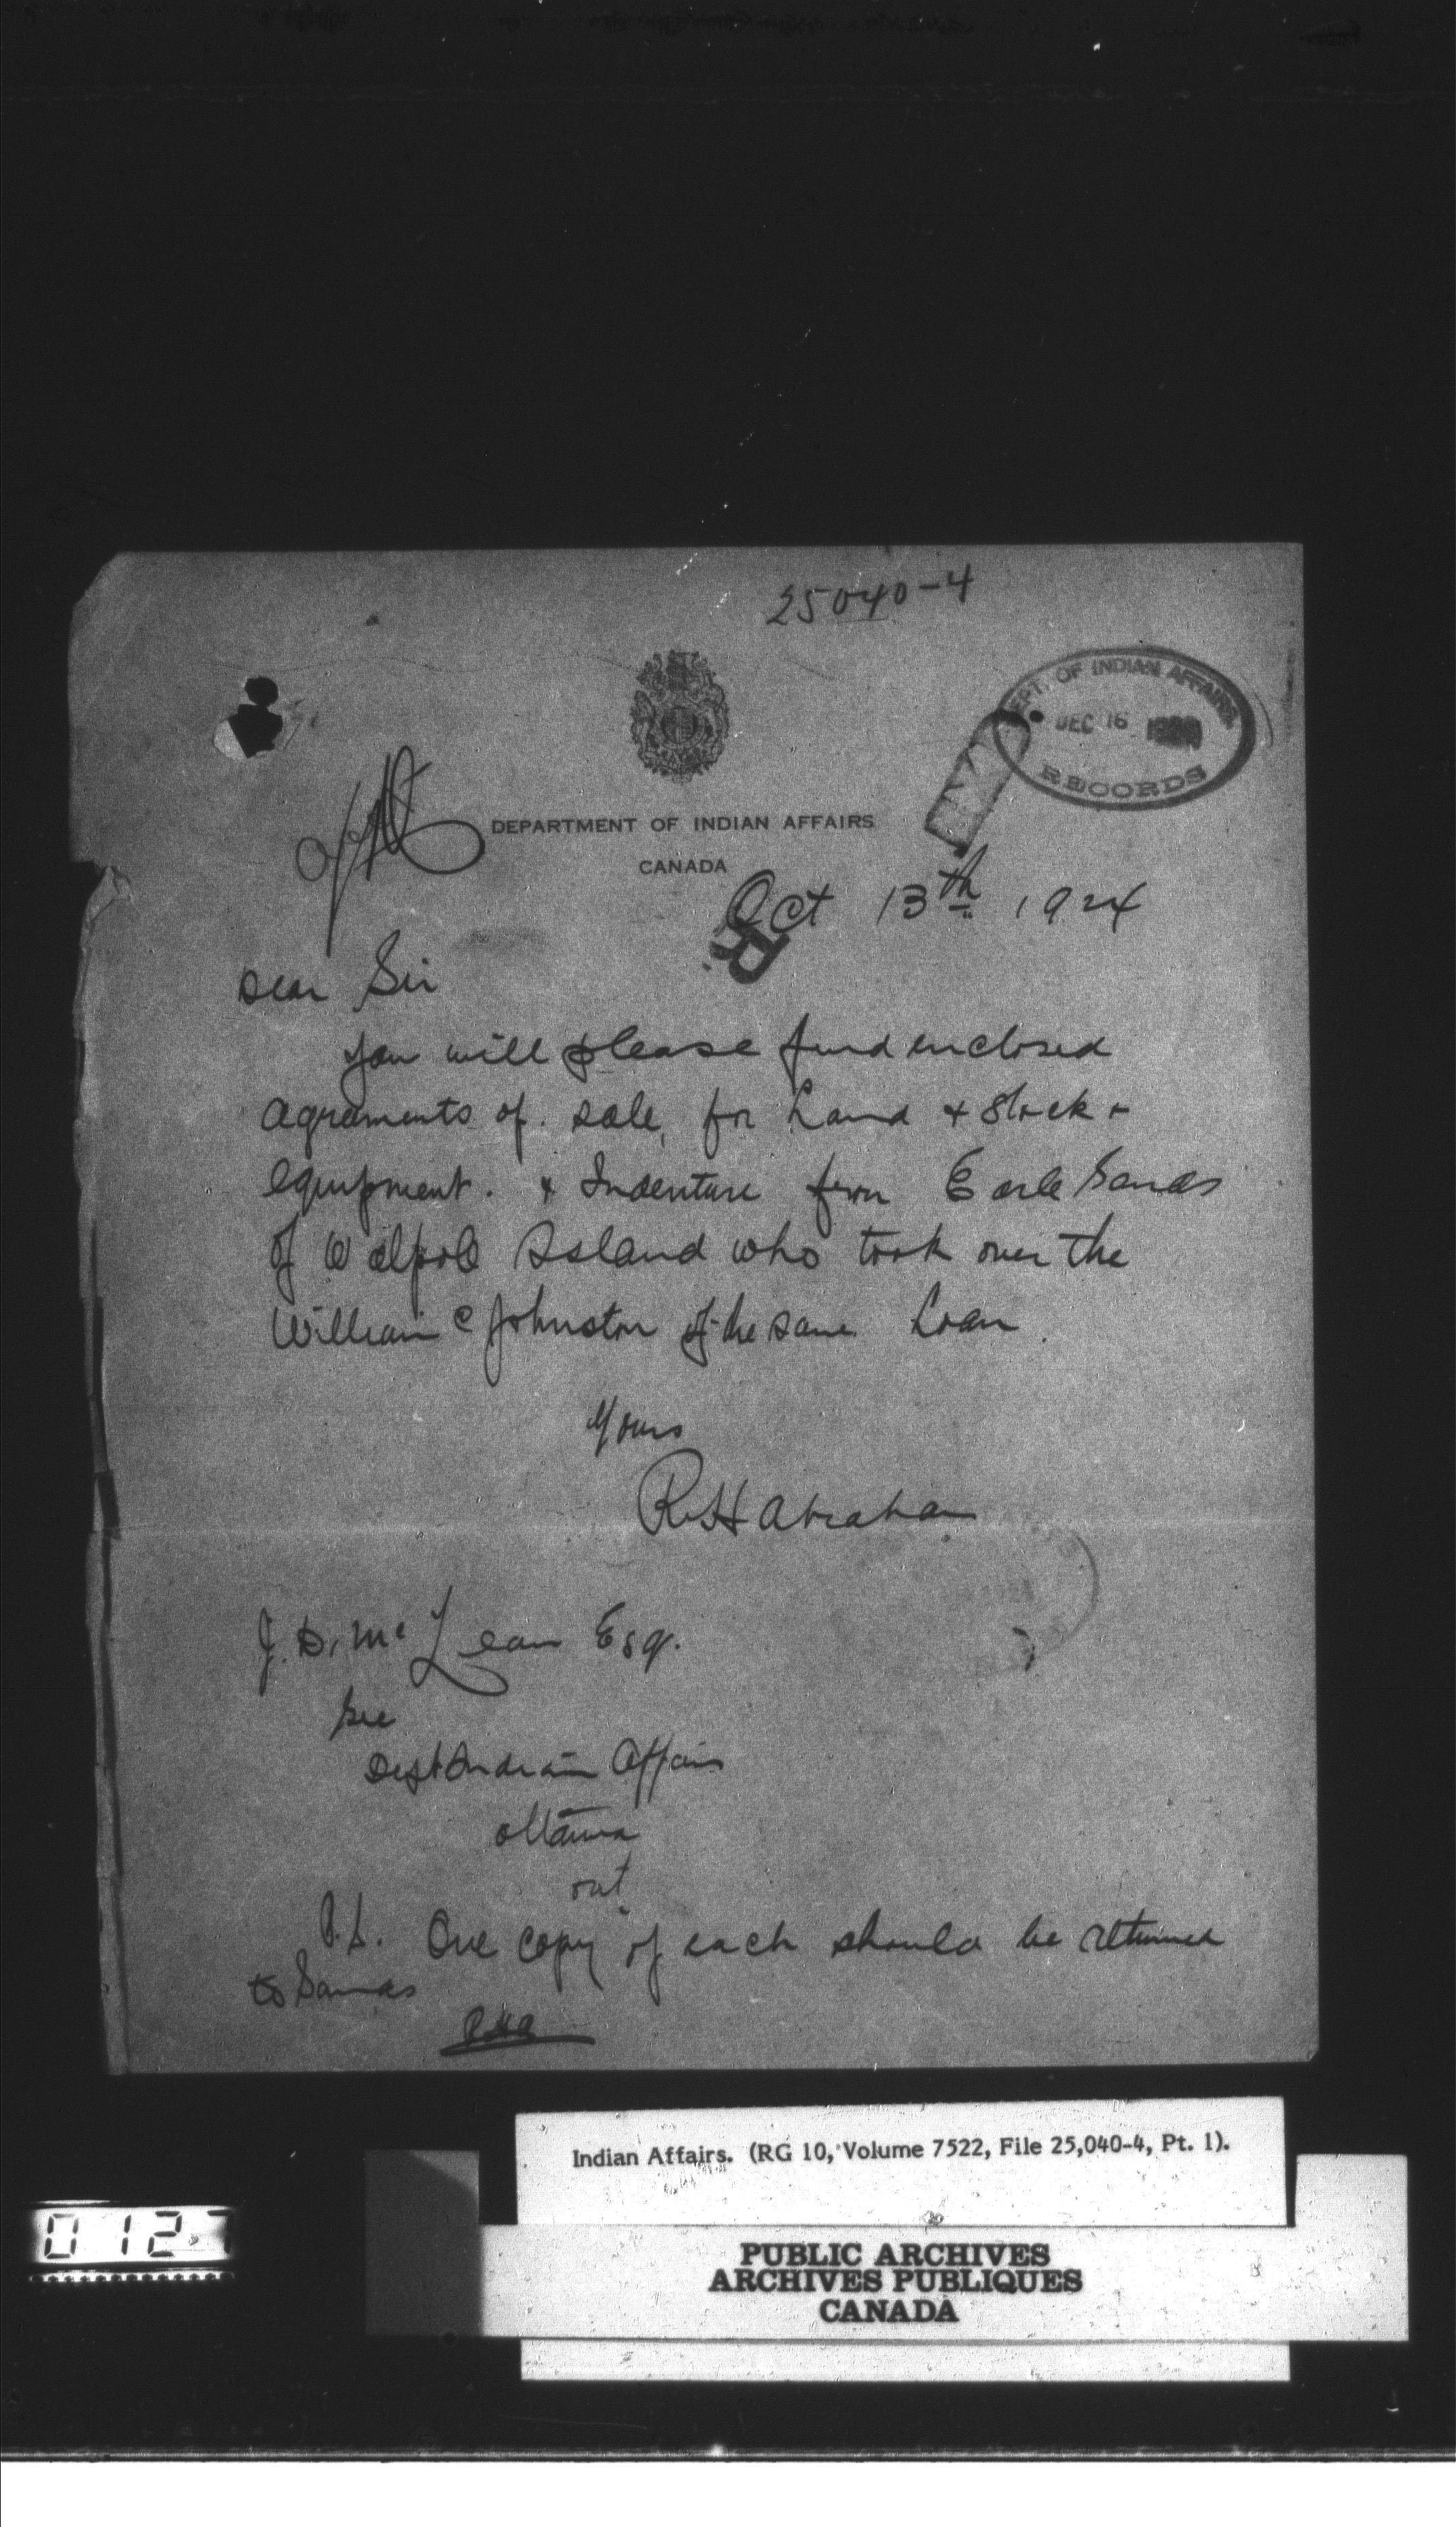 25040-4
DEPT. OF INDIAN AFFAIRS
DEC 16
RECORDS
DEPARTMENT OF INDIAN AFFAIRS
CANADA
Oct 13th 1924
R
Dear Sir
You will please find enclosed
agreements of sale, for Land & Stock &
equipment. & Indenture from Earle Sands
of Walpole Island who took over the
William C Johnston of the same Loan.
Yours
R H Abraham
J. D. Mc Lean Esq.
Sec
Dept Indian Affairs
Ottawa
Ont
P.S. One copy of each should be returned
to Sands
RHA
Indian Affairs. (RG 10, Volume 7522, File 25,040-4, Pt. 1).
PUBLIC ARCHIVES
ARCHIVES PUBLIQUES
CANADA
0127